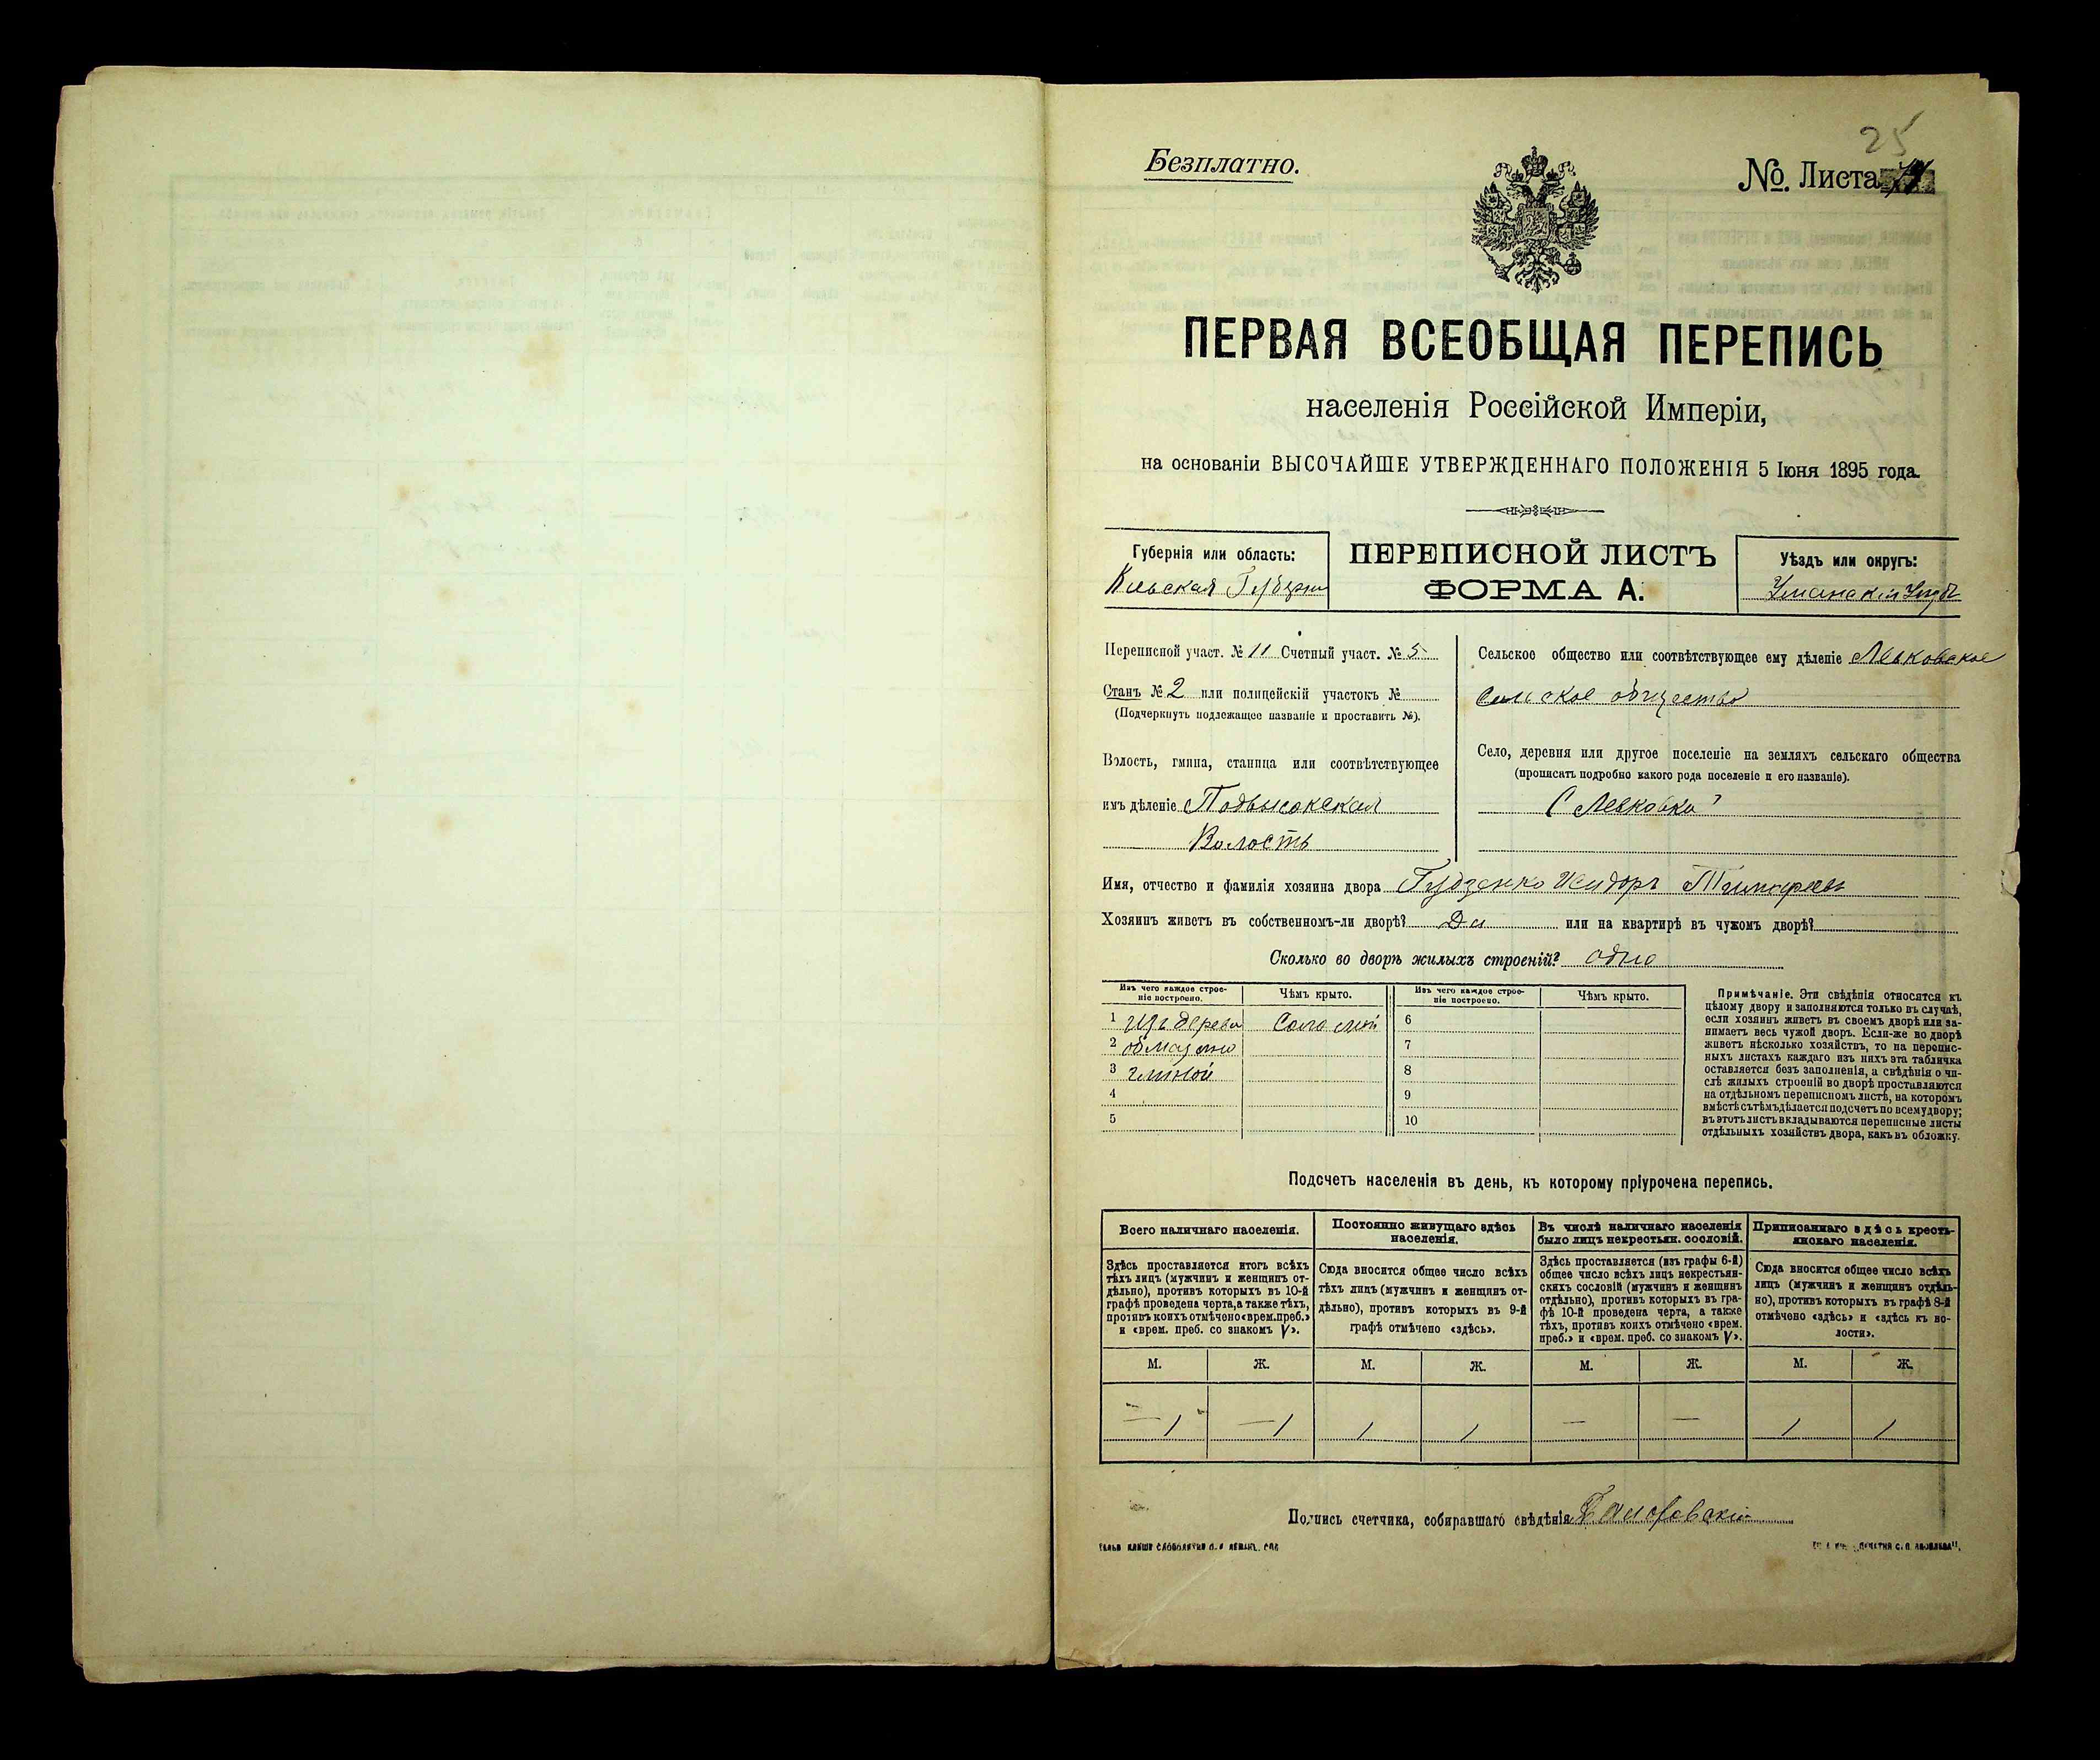 25
Безплатно.
№ Листа
ПЕРВАЯ ВСЕОБЩАЯ ПЕРЕПИСЬ
населенія Россійской Имперіи,
на основаніи ВЫСОЧАЙШЕ УТВЕРЖДЕННАГО ПОЛОЖЕНІЯ 5 Іюня 1895 года.
Губернія или область:
Кіевская
ПЕРЕПИСНОЙ ЛИСТЪ
ФОРМА А.
Уѣздъ или округъ:
Уманскій Уѣздъ
Переписной участ. № 11 Счетный участ. № 5
Станъ № 2 или полицейскій участокъ №
(Подчеркнуть подлежащее названіе и проставить №).
Волость, гмина, станица или соотвѣтствующее
имъ дѣленіе Подвысокская
Волость
Сельское общество или соотвѣтствующее ему дѣленіе Левковское
Сельское общество
Село, деревня или другое поселеніе на земляхъ сельскаго общества
(прописать подробно какого рода поселеніе и его названіе).
С Левковка
Имя, отчество и фамилія хозяина двора Гудзенко Исидоръ Тимофеевъ
Хозяинъ живетъ въ собственномъ-ли дворѣ? Да или на квартирѣ въ чужомъ дворѣ?
Сколько во дворѣ жилыхъ строеній? одно
Изъ чего каждое строе-
ніе построено.
Чѣмъ крыто.
Изъ чего каждое строе-
ніе построено.
Чѣмъ крыто.
1 изъ дерева Соломой 6
2 обмазано 7
3 глиной 8
4 9
5 10
Примѣчаніе. Эти свѣдѣнія относятся къ
цѣлому двору и заполняются только въ случаѣ,
если хозяинъ живетъ въ своемъ дворѣ или за-
нимаетъ весь чужой дворъ. Если-же во дворѣ
живетъ нѣсколько хозяйствъ, то на перепис-
ныхъ листахъ каждаго изъ нихъ эта табличка
оставляется безъ заполненія, а свѣдѣнія о чи-
слѣ жилыхъ строеній во дворѣ проставляются
на отдѣльномъ переписномъ листѣ, на которомъ
вмѣстѣ съ тѣмъ дѣлается подсчетъ по всему двору;
въ этотъ листъ вкладываются переписные листы
отдѣльныхъ хозяйствъ двора, какъ въ обложку.
Подсчетъ населенія въ день, къ которому пріурочена перепись.
Всего наличнаго населенія.
Здѣсь проставляется итогъ всѣхъ
тѣхъ лицъ (мужчинъ и женщинъ от-
дѣльно), противъ которыхъ въ 10-й
графѣ проведена черта, а также тѣхъ,
противъ коихъ отмѣчено «врем. преб.»
и «врем. преб. со знакомъ V».
Постоянно живущаго здѣсь
населенія.
Сюда вносится общее число всѣхъ
тѣхъ лицъ (мужчинъ и женщинъ от-
дѣльно), противъ которыхъ въ 9-й
графѣ отмѣчено «здѣсь».
Въ числѣ наличнаго населенія
было лицъ некрестьян. сословій.
Здѣсь проставляется (изъ графы 6-й)
общее число всѣхъ лицъ некрестьян-
скихъ сословій (мужчинъ и женщинъ
отдѣльно), противъ которыхъ въ гра-
фѣ 10-й проведена черта, а также
тѣхъ, противъ коихъ отмѣчено «врем.
преб.» и «врем. преб. со знакомъ V».
Приписаннаго здѣсь кресть-
янскаго населенія.
Сюда вносится общее число всѣхъ
лицъ (мужчинъ и женщинъ отдѣль-
но), противъ которыхъ въ графѣ 8-й
отмѣчено «здѣсь» и «здѣсь къ во-
лости».
М. Ж. М. Ж. М. Ж. М. Ж.
— 1 — 1 1 1 — — 1 1
Подпись счетчика, собиравшаго свѣдѣнія